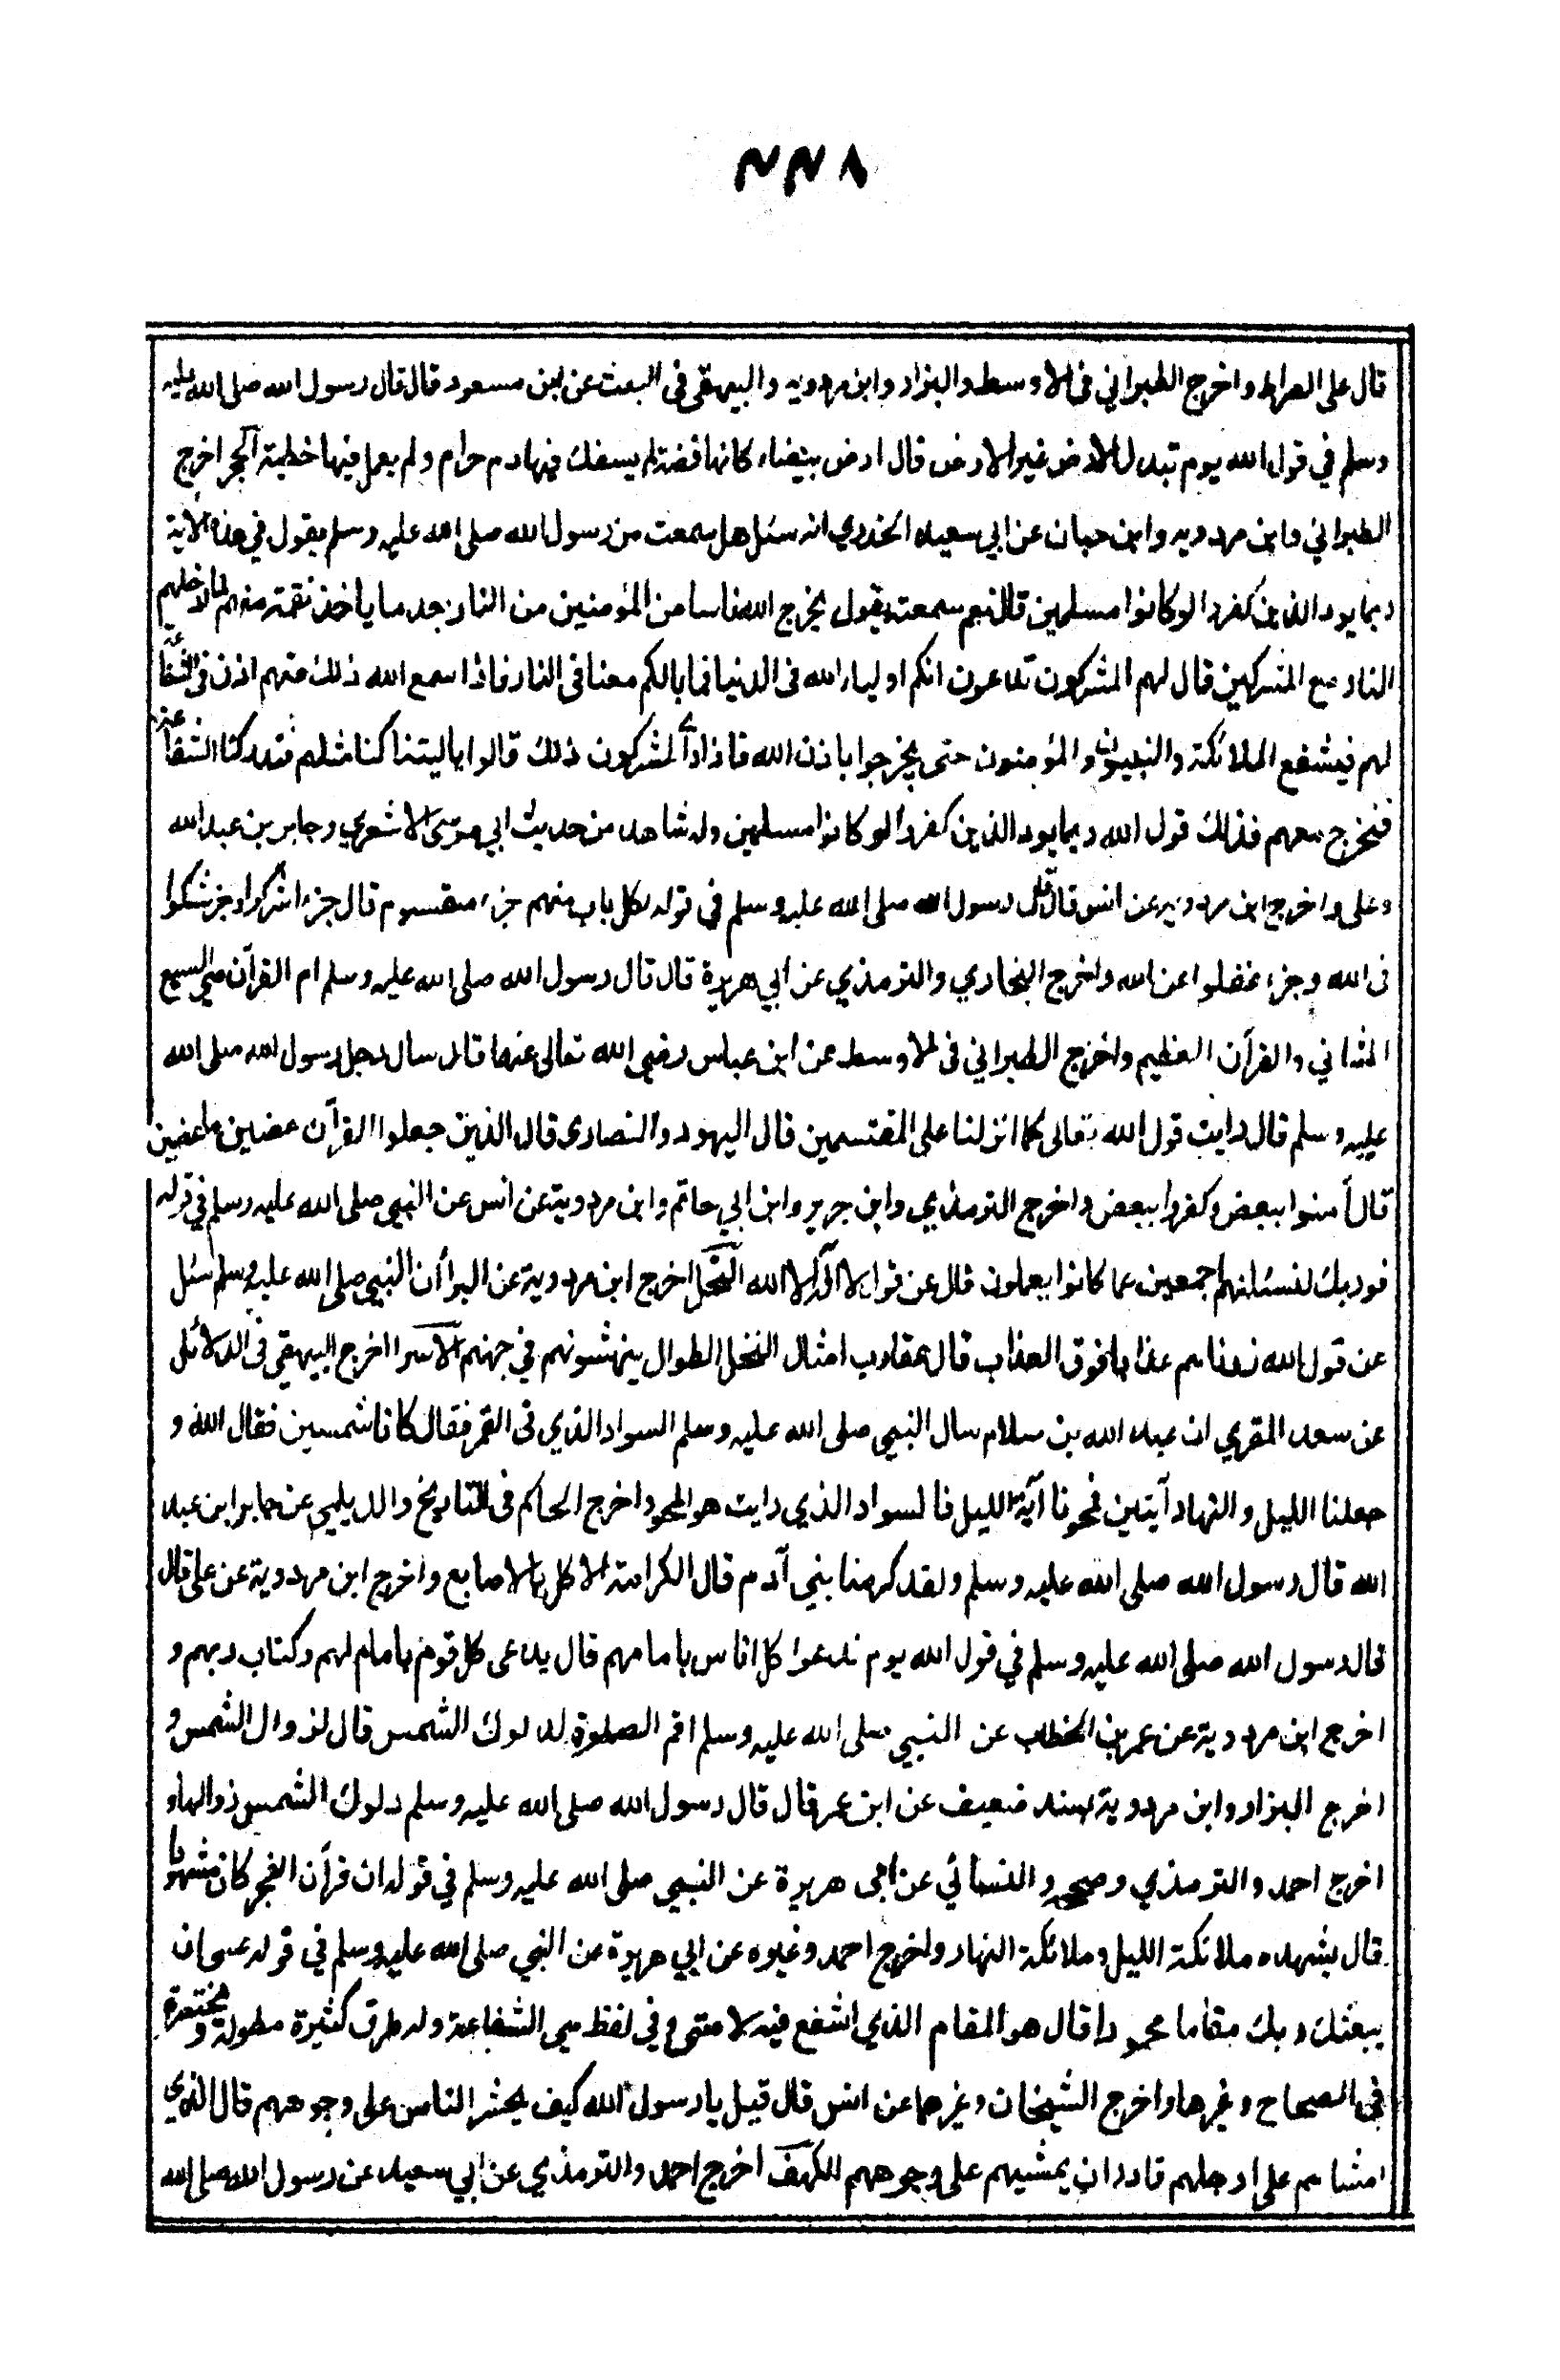 ٣٣٨
قال على الصراط واخرج الطبراني فى الاوسط والبزار وابن مردويه والبيهقى فى البعث عن ابن مسعود قال قال رسول الله صلى الله عليه
وسلم في قول الله يوم تبدل الارض غير الارض قال ارض بيضاء كانها فضة لم يسفك فيها دم حرام ولم يعمل فيها خطية الحجر اخرج
الطبراني وابن مردويه وابن حبان عن ابي سعيد الخدري انه سئل هل سمعت من رسول الله صلى الله عليه وسلم يقول في هذه الآية
ربما يود الذين كفروا لو كانوا مسلمين قال نعم سمعته يقول يخرج الله ناسا من المؤمنين من النار بعد ما ياخذ نقمته منهم لما ادخلهم
النار مع المشركين قال لهم المشركون تدعون انكم اولياء الله فى الدنيا فما بالكم معنا فى النار فاذا سمع الله ذلك منهم اذن فى الشفاعة
لهم فيشفع الملائكة والنبيون والمؤمنون حتى يخرجوا باذن الله فاذا رأى المشركون ذلك قالوا ياليتنا كنا مثلهم فتدركنا الشفاعة
فنخرج معهم فذلك قول الله ربما يود الذين كفروا لو كانوا مسلمين وله شاهد من حديث ابي موسى الاشعري وجابر بن عبد الله
وعلى واخرج ابن مردويه عن انس قال قال رسول الله صلى الله عليه وسلم في قوله لكل باب منهم جزء مقسوم قال جزء اشركوا وجزء شكوا
فى الله وجزء غفلوا عن الله واخرج البخاري والترمذي عن ابي هريرة قال قال رسول الله صلى الله عليه وسلم ام القرآن هي السبع
المثاني والقرآن العظيم واخرج الطبراني فى الاوسط عن ابن عباس رضى الله تعالى عنهما قال سال رجل رسول الله صلى الله
عليه وسلم قال رايت قول الله تعالى كما انزلنا على المقتسمين قال اليهود والنصارى قال الذين جعلوا القرآن عضين ما عضين
قال آمنوا ببعض وكفروا ببعض واخرج الترمذي وابن جرير وابن ابي حاتم وابن مردوية عن انس عن النبى صلى الله عليه وسلم في قوله
فوربك لنسئلنهم اجمعين عما كانوا يعملون قال عن قول لا اله الا الله النحل اخرج ابن مردوية عن البراء ان النبى صلى الله عليه وسلم سئل
عن قول الله زدناهم عذابا فوق العذاب قال عقارب امثال النخل الطوال ينهشونهم في جهنم الاسرا اخرج البيهقى فى الدلائل
عن سعد المقري ان عبد الله بن سلام سال النبى صلى الله عليه وسلم السواد الذي فى القمر فقال كانا شمسين فقال الله و
جعلنا الليل والنهار آيتين فمحونا آية الليل فالسواد الذي رايت هو المحو واخرج الحاكم فى التاريخ والديلمي عن جابر ابن عبد
الله قال رسول الله صلى الله عليه وسلم ولقد كرمنا بني آدم قال الكرامة الاكل بالاصابع واخرج ابن مردوية عن على قال
قال رسول الله صلى الله عليه وسلم في قول الله يوم ندعوا كل اناس بامامهم قال يدعى كل قوم بامام لهم وكتاب ربهم و
اخرج ابن مردوية عن عمر بن الخطاب عن النبي صلى الله عليه وسلم اقم الصلوة لدلوك الشمس قال لزوال الشمس و
اخرج البزار وابن مردوية بسند ضعيف عن ابن عمر قال قال رسول الله صلى الله عليه وسلم دلوك الشمس زوالها و
اخرج احمد والترمذي وصححه والنسائي عن ابى هريرة عن النبي صلى الله عليه وسلم في قوله ان قرآن الفجر كان مشهودا
قال يشهده ملائكة الليل وملائكة النهار واخرج احمد وغيره عن ابي هريرة عن النبي صلى الله عليه وسلم في قوله عسى ان
يبعثك ربك مقاما محمودا قال هو المقام الذي اشفع فيه لامتى وفي لفظ هى الشفاعة وله طرق كثيرة مطولة ومختصرة
فى الصحاح وغيرها واخرج الشيخان وغيرهما عن انس قال قيل يا رسول الله كيف يحشر الناس على وجوههم قال الذي
امشاهم على ارجلهم قادر ان يمشيهم على وجوههم الكهف اخرج احمد والترمذي عن ابي سعيد عن رسول الله صلى الله